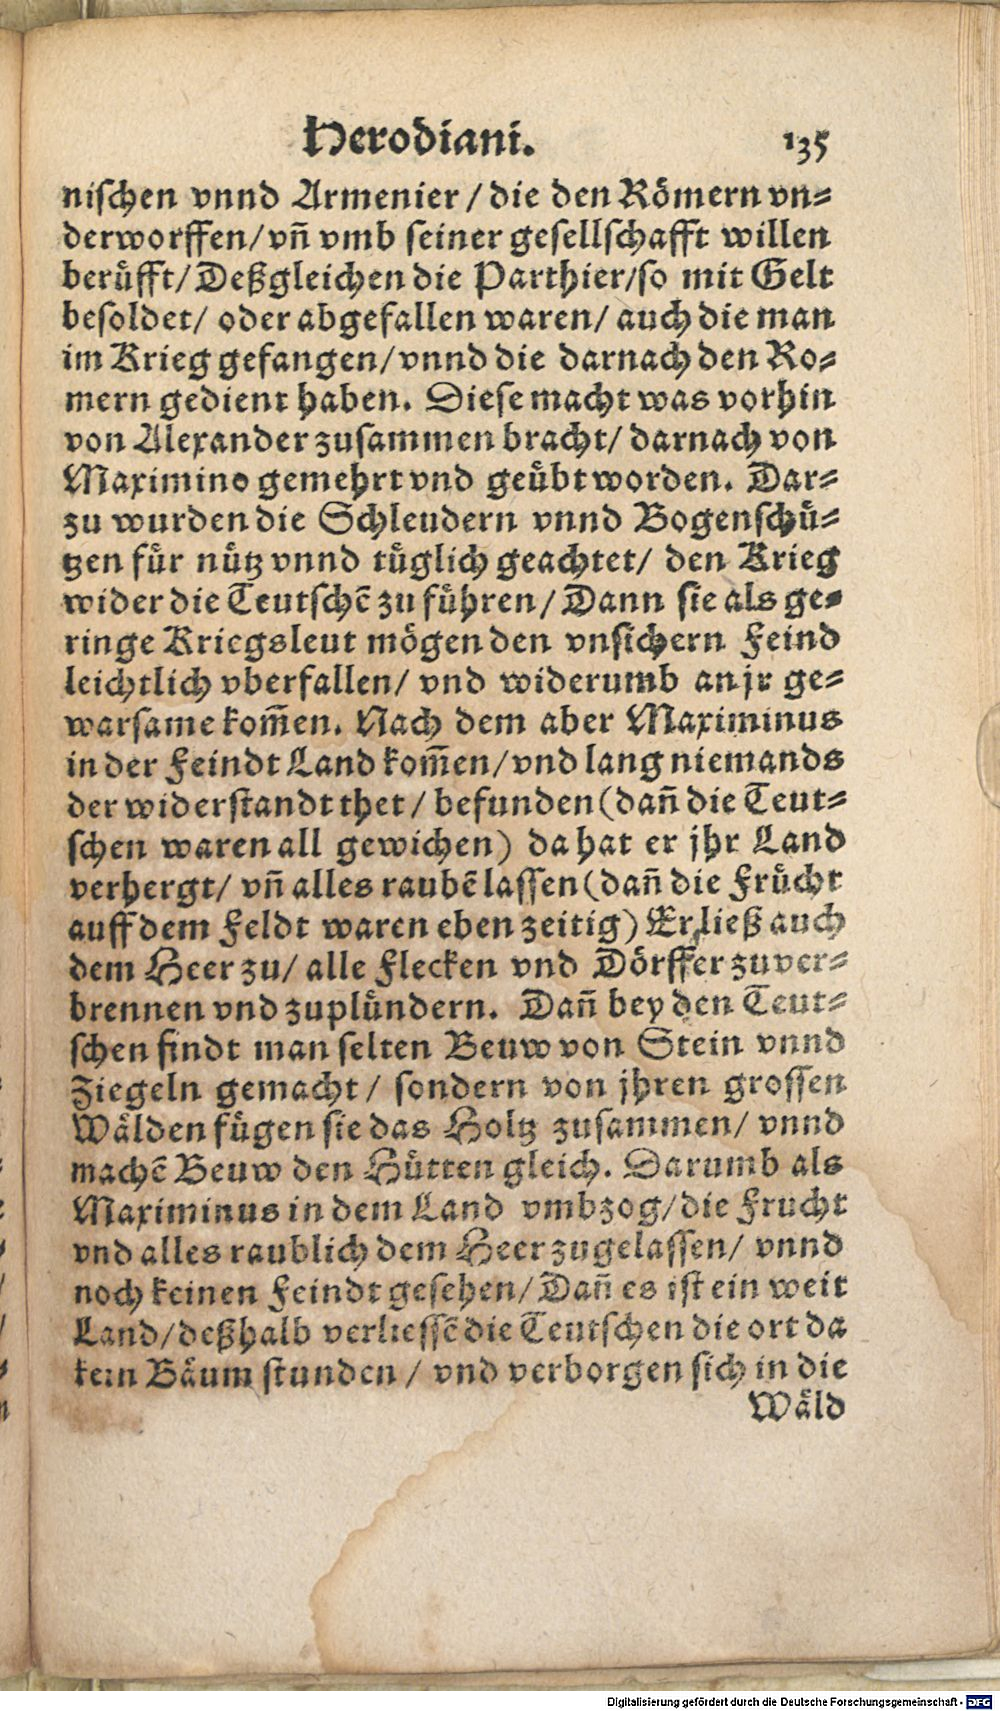 Herodiani. 135
nischen vnnd Armenier / die den Römern vn-
derworffen/ vñ vmb seiner gesellschafft willen
berüfft/ Deßgleichen die Parthier/ so mit Gelt
besoldet/ oder abgefallen waren/ auch die man
im Krieg gefangen/ vnnd die darnach den Ro-
mern gedient haben. Diese macht was vorhin
von Alexander zusammen bracht/ darnach von
Maximino gemehrt vnd geübt worden. Dar-
zu wurden die Schleudern vnnd Bogenschü-
tzen für nütz vnnd tüglich geachtet/ den Krieg
wider die Teutschẽ zu führen/ Dann sie als ge-
ringe Kriegsleut mögen den vnsichern Feind
leichtlich vberfallen/ vnd widerumb an jr ge-
warsame kom̃en. Nach dem aber Maximinus
in der Feindt Land kom̃en/ vnd lang niemands
der widerstandt thet / befunden (dañ die Teut-
schen waren all gewichen) da hat er jhr Land
verhergt/ vñ alles raubẽ lassen (dañ die Frücht
auff dem Feldt waren eben zeitig) Er ließ auch
dem Heer zu/ alle Flecken vnd Dörffer zuver-
brennen vnd zuplündern. Dañ bey den Teut-
schen findt man selten Beuw von Stein vnnd
Ziegeln gemacht / sondern von jhren grossen
Wälden fügen sie das Holtz zusammen/ vnnd
machẽ Beuw den Hütten gleich. Darumb als
Maximinus in dem Land vmbzog/ die Frucht
vnd alles raublich dem Heer zugelassen/ vnnd
noch keinen Feindt gesehen/ Dañ es ist ein weit
Land/ deßhalb verliessẽ die Teutschen die ort da
kein Bäum stunden / vnd verborgen sich in die
Wäld
Digitalisierung gefördert durch die Deutsche Forschungsgemeinschaft - DFG